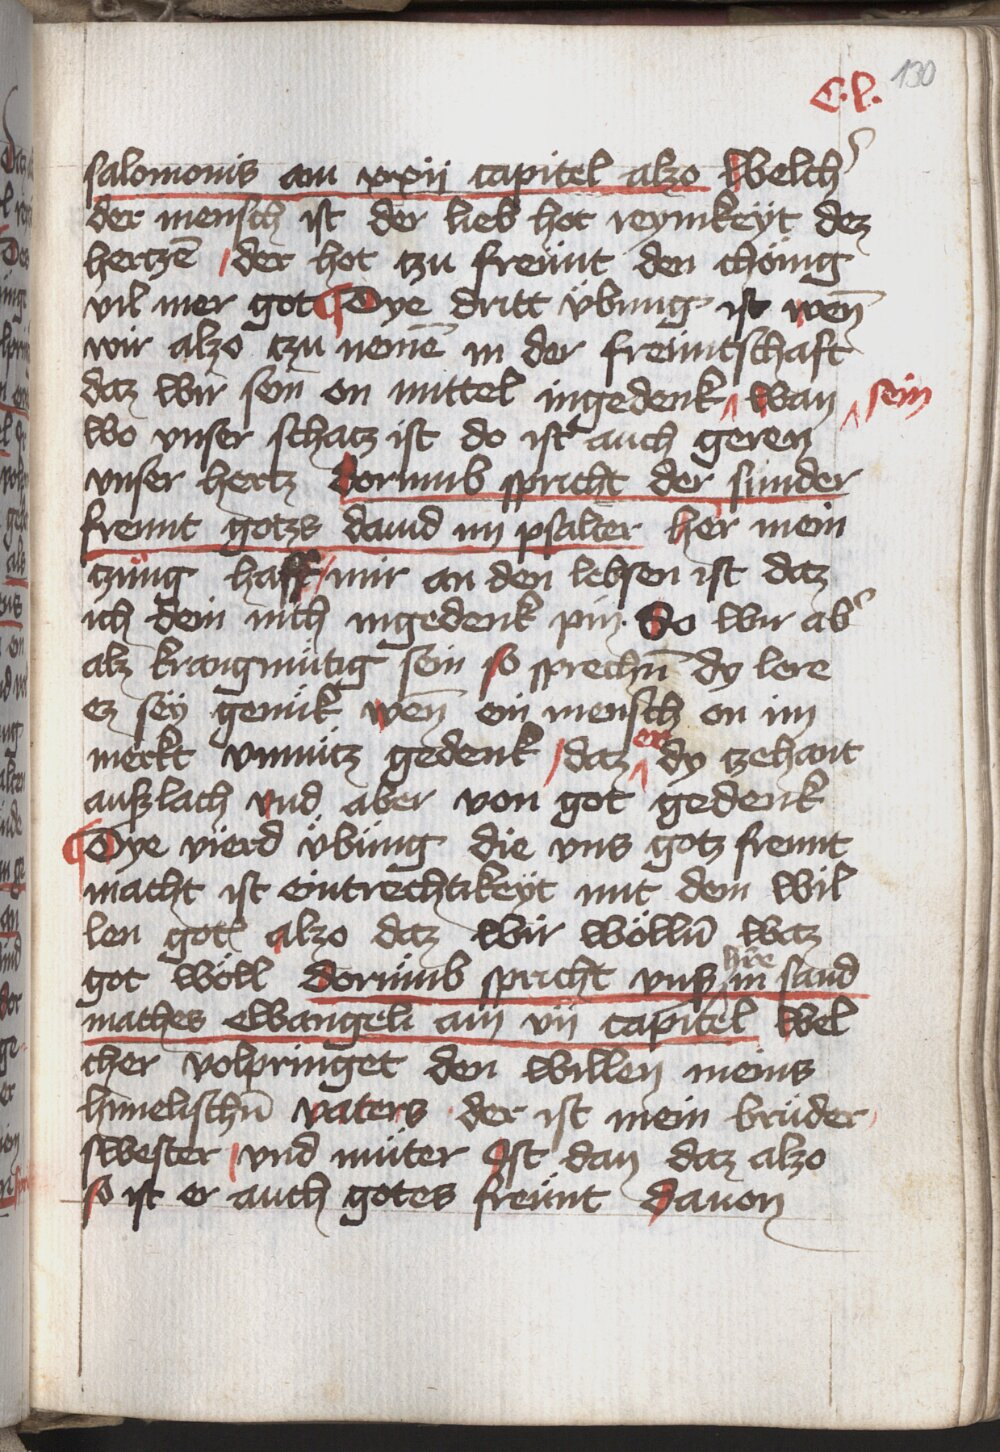 C.l. 130
salomonis am xxii capitel alzo Welch᷑
der mensch ist der lieb hot reynikeyt dez
hertzē der hot tzu freünt den chönig
vil mer got Dye dritt übung ist wen̄
wir alzo tzu nemē in der freüntschaft
daz wir sein on mittel ingedenk wan sein
wo vnser schatz ist do ist auch geren
vnser hertz dorumb spricht der sunder
freunt gotzs dauid im psalter her mein
tzüng hafft mir an den lebsen ist daz
ich dein nich ingedenk pin. So wir ab᷑
alz krangmütig sein so sprechn̄ dy lere
ez sey genük wen̄ ein mensch on im
merkt vnnütz gedenk daz er dy zehant
außlach vnd aber von got gedenk
Dye vierd übüng die vns gotz freunt
macht ist eintrechtikeyt mit dem wil
len got alzo daz wir wölln̄ waz
got wöll dorümb spricht vnß hʳre in sand
mathes ewangeli am vii capitel wel
cher volpringet den willen meins
himelischn̄ vaters der ist mein brüder
swester vnd müter Ist dan daz alzo
so ist er auch gotes freünt dauon